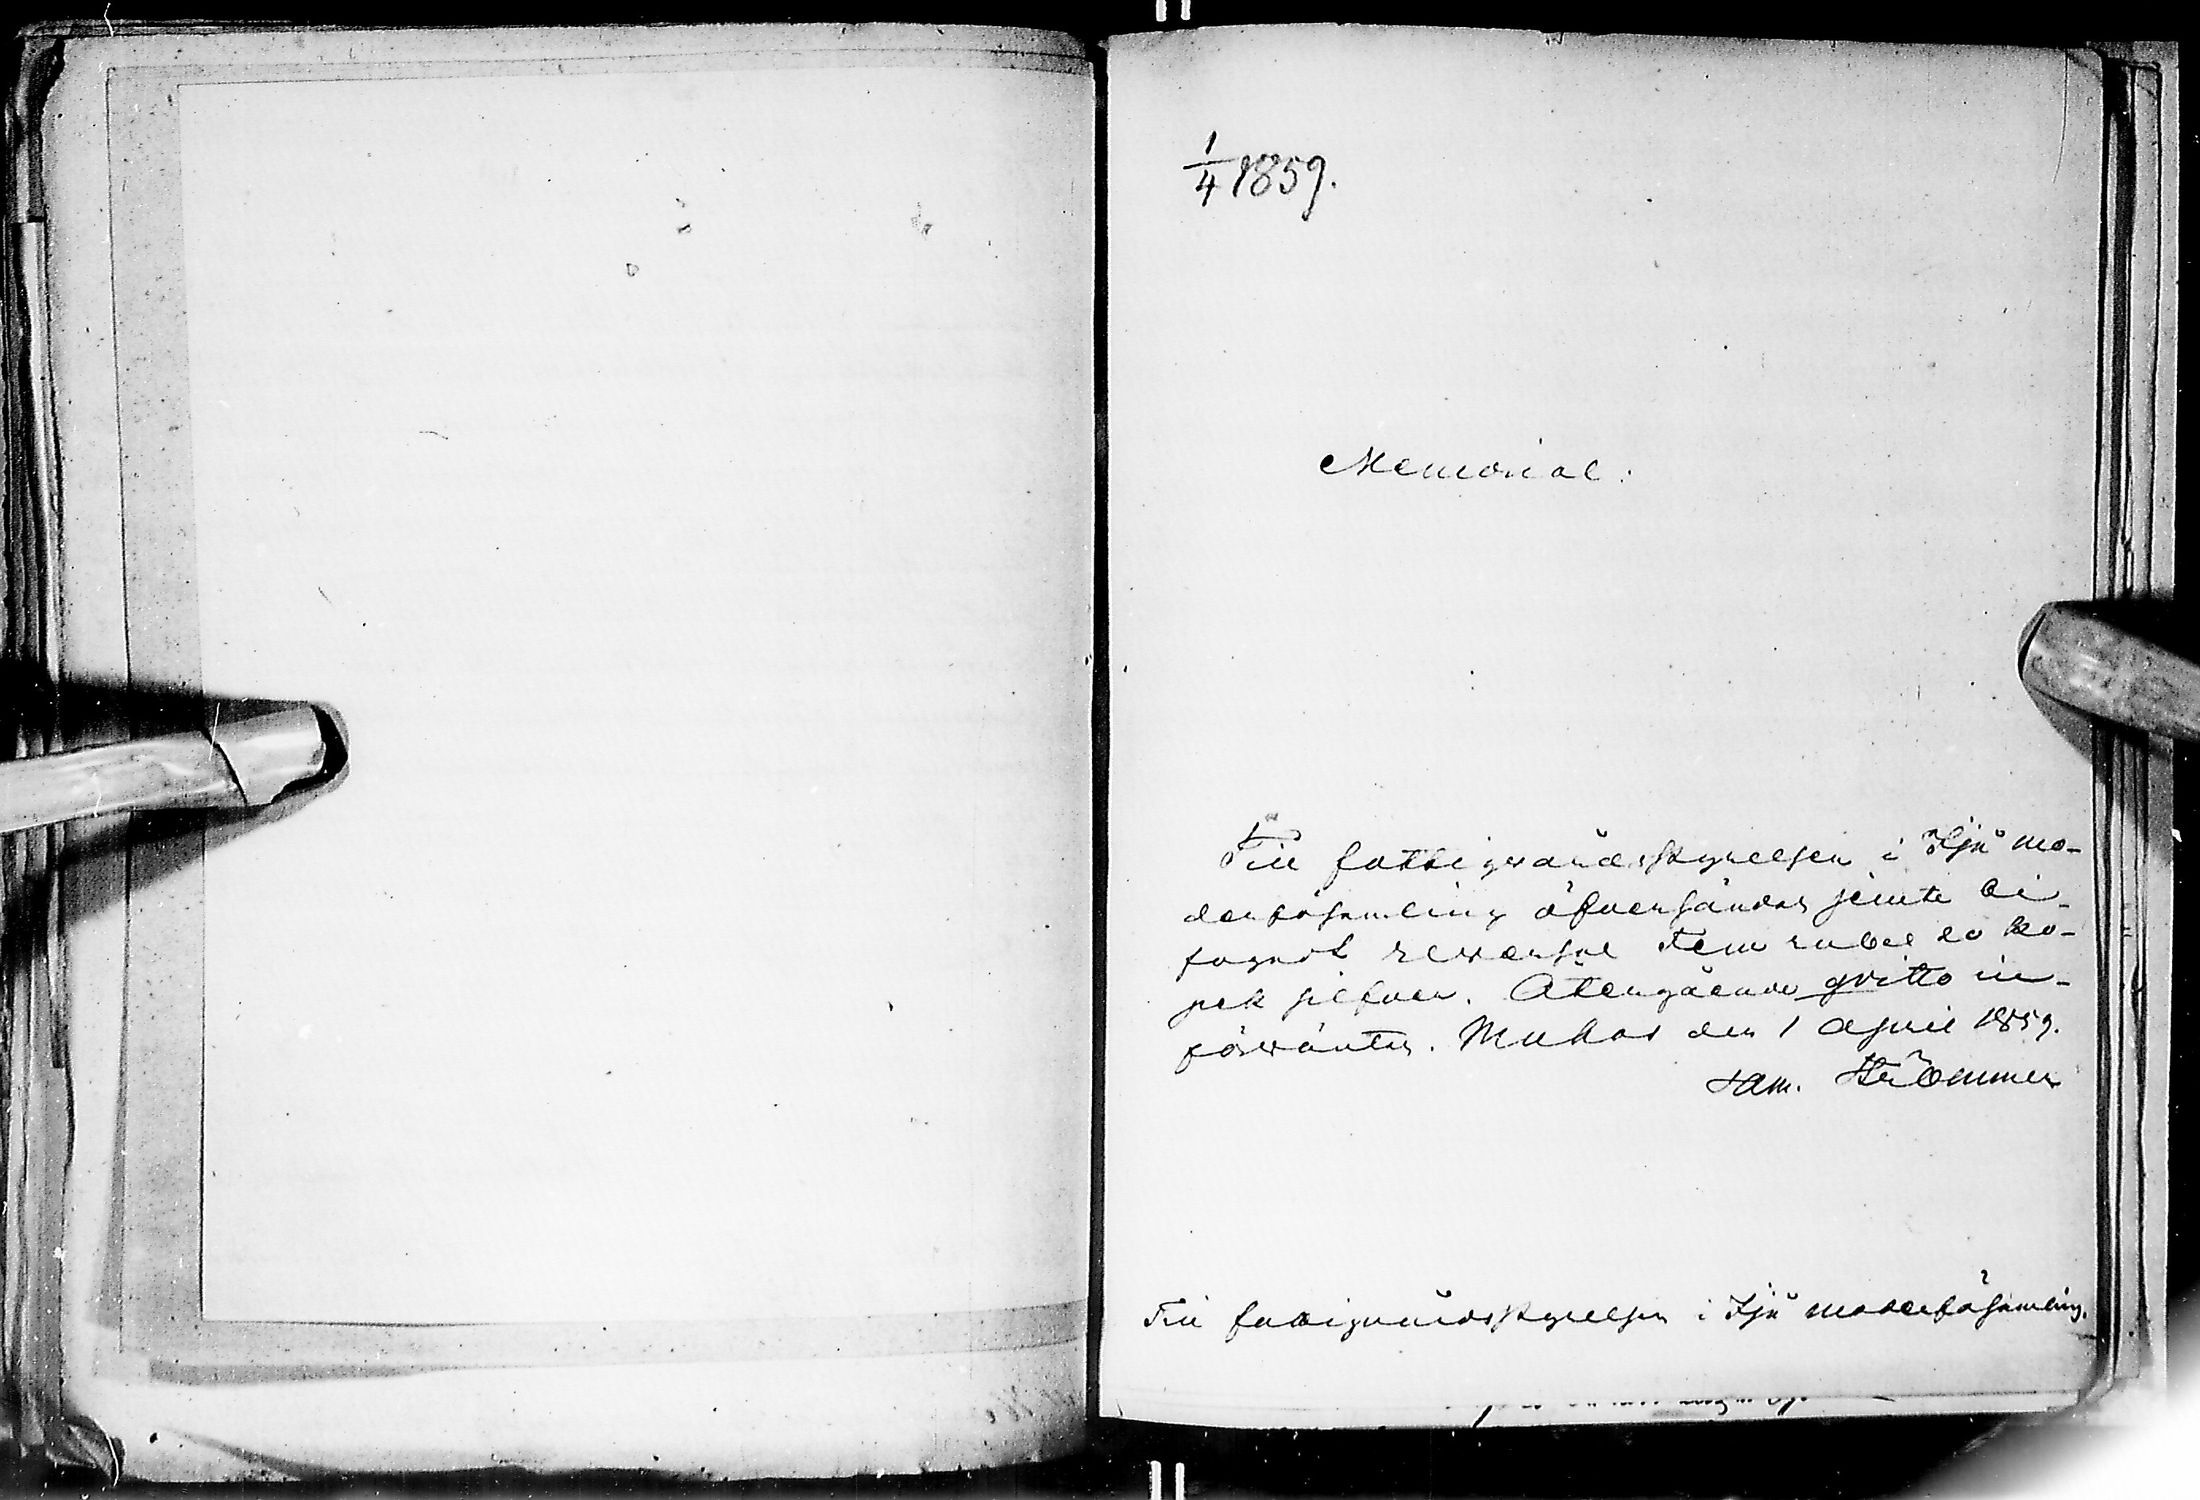 1/4 1859.
Memorial.
Till fattigvårdsstyrelsen i Ijå mo-
derförsamling öfversändes jemte bi-
fogadt reversal Fem rubel 20 ko-
pek silfver. Återgående qvitto in-
förväntes. Muhos den 1 April 1859.
Sam. Strömmer
Till fattigvårdsstyrelsen i Ijå moderförsamling.